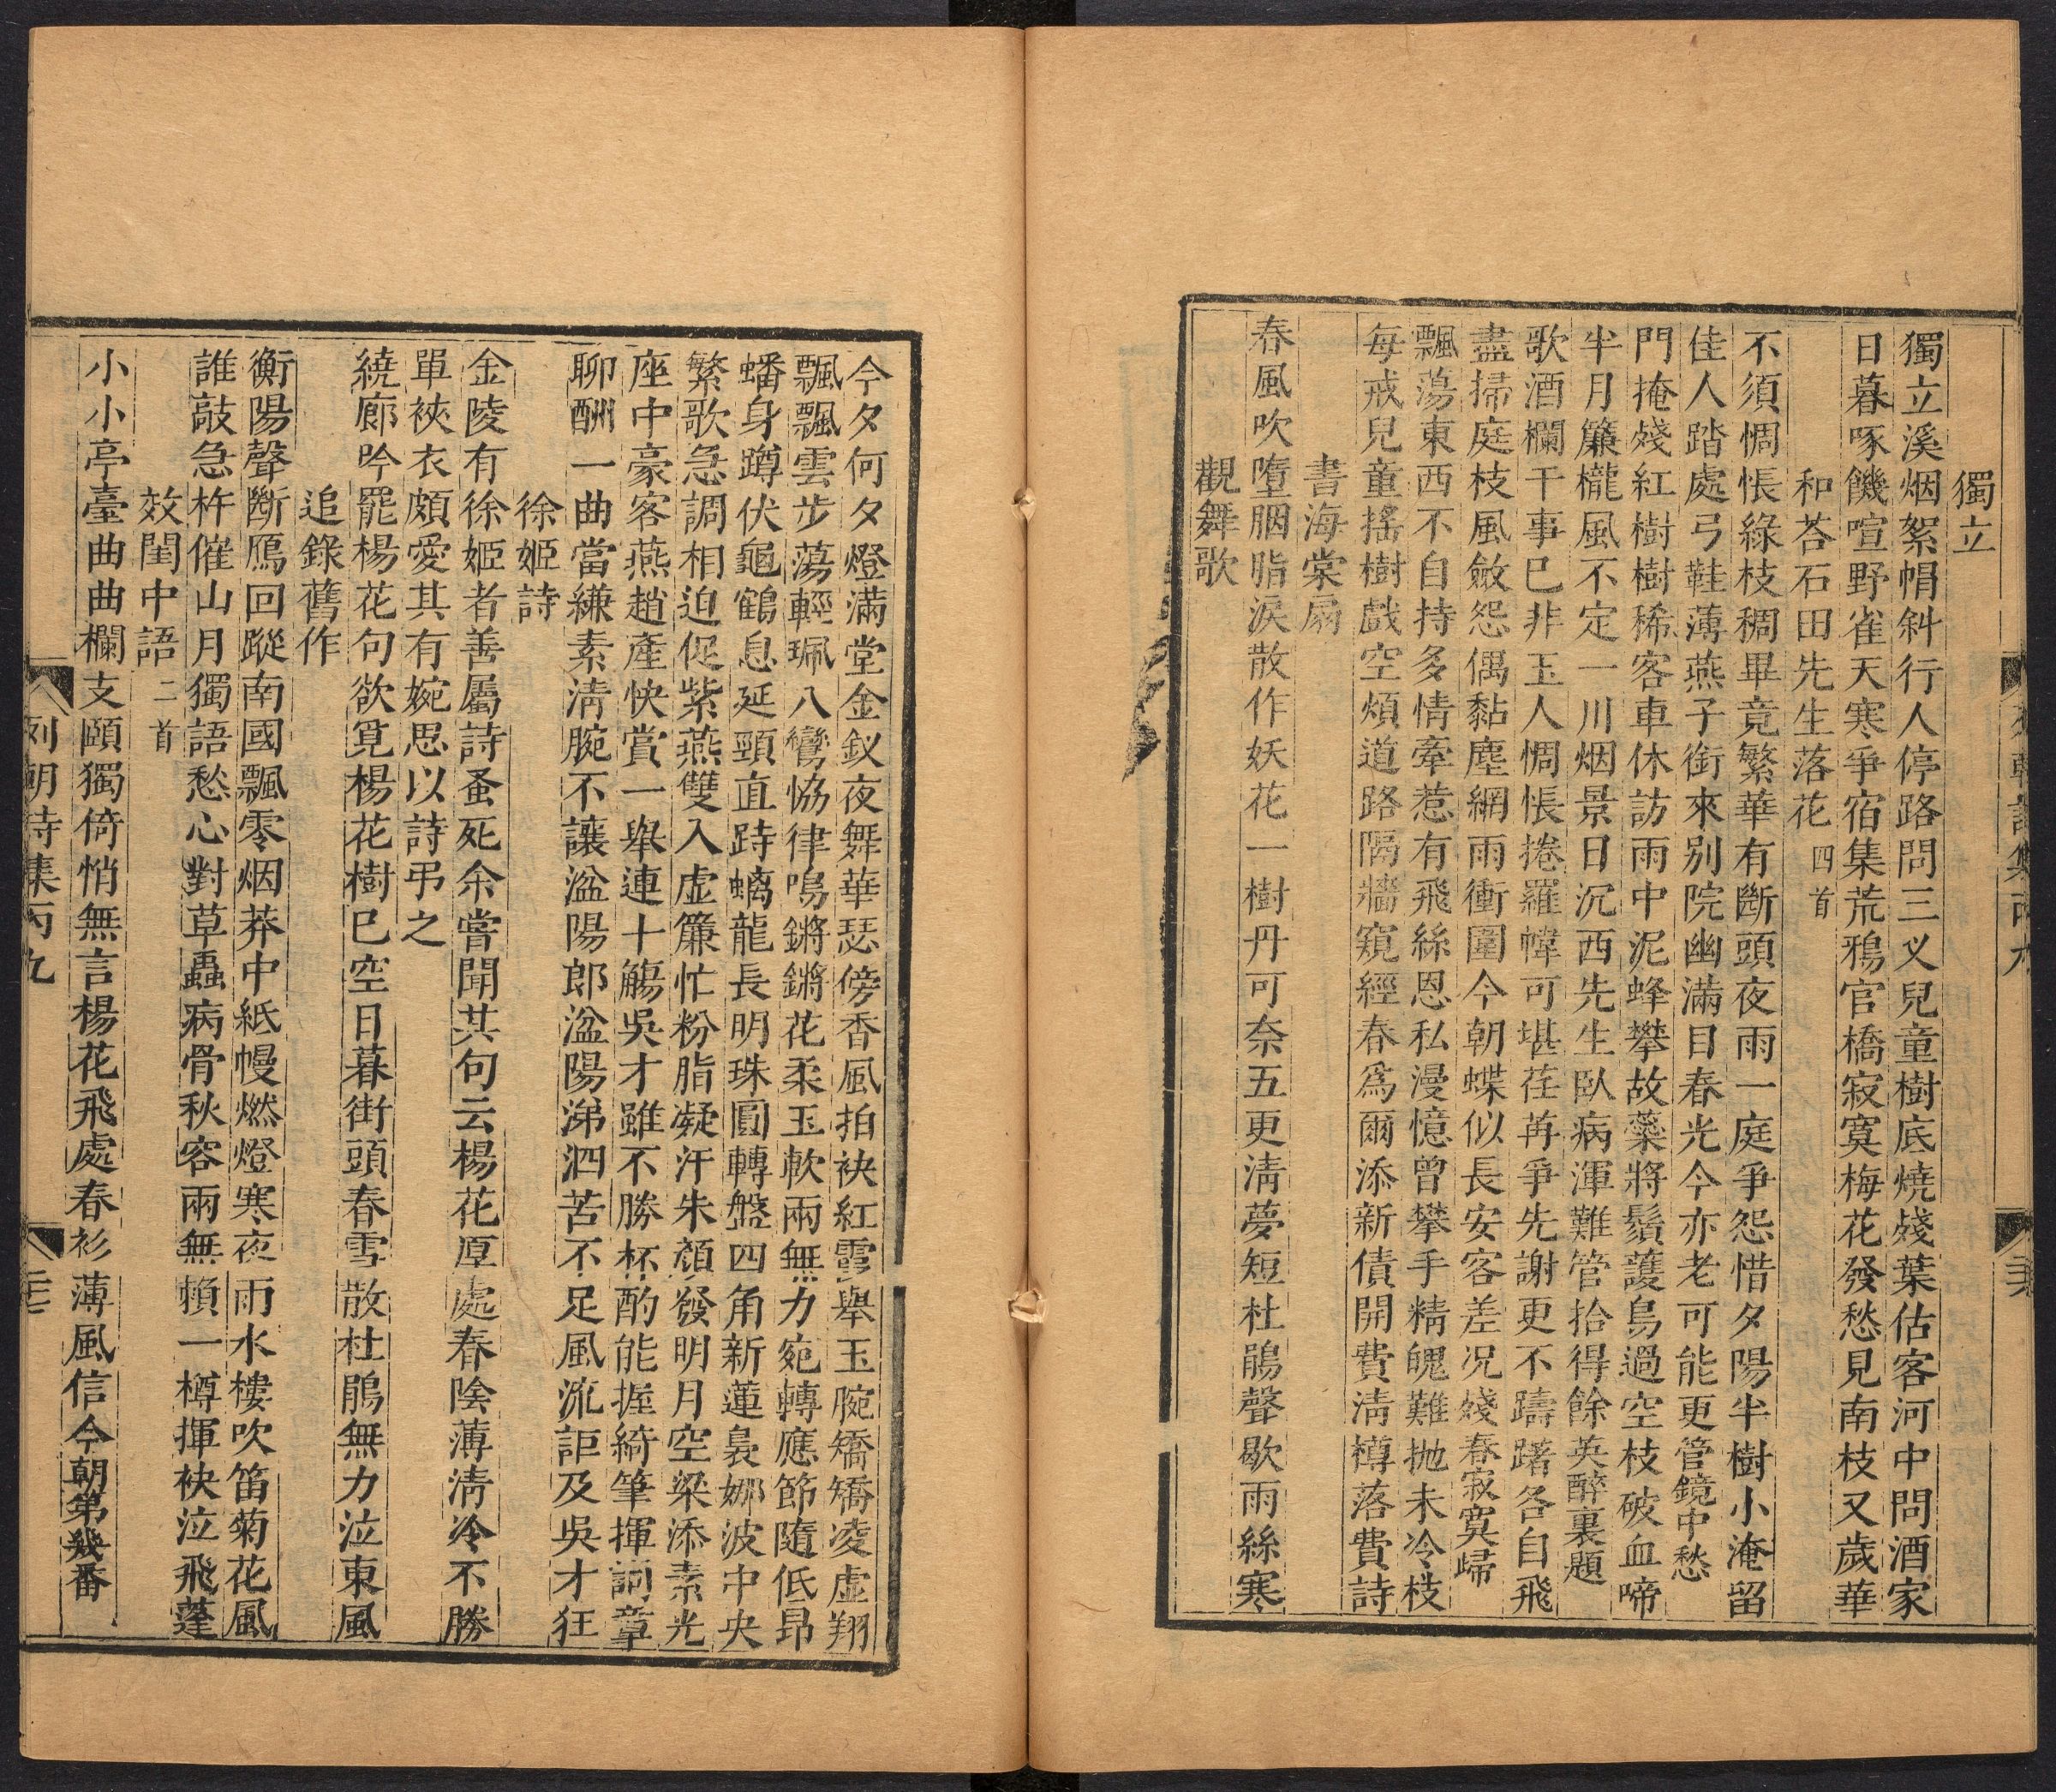 獨立
獨立溪烟絮帽斜行人停路問三义兒童樹底燒殘葉估客河中問酒家
日暮啄饑喧野雀天寒爭宿集荒鴉官橋寂寞梅花發愁見南枝又歲華
和荅石田先生落花四首
不須惆悵綠枝稠畢竟繁華有斷頭夜雨一庭爭怨惜夕陽半樹小淹留
佳人踏處弓鞋薄燕子銜來別院幽滿目春光今亦老可能更管鏡中愁
門掩殘紅樹樹稀客車休訪雨中泥蜂攀故蘂將鬚護鳥過空枝破血啼
半月簾櫳風不定一川烟景日沉西先生臥病渾難管拾得餘英醉裏題
歌酒欄干事已非玉人惆悵捲羅幃可堪荏苒爭先謝更不躊躇各自飛
盡掃庭枝風斂怨偶黏塵網雨衝圍今朝蝶似長安客差况殘春寂寞歸
飄蕩東西不自持多情牽惹有飛絲恩私漫憶曾攀手精魄難拋未冷枝
每戒兒童搖樹戲空煩道路隔牆窺經春爲爾添新債開費淸樽落費詩
書海棠扇
春風吹墮胭脂淚散作妖花一樹丹可奈五更淸夢短杜鵑聲歇雨絲寒
觀舞歌
今夕何夕燈滿堂金釵夜舞華瑟傍香風拍袂紅霞舉玉腕矯矯凌虛翔
飄飄雲步蕩輕珮八鸞協律鳴鏘鏘花柔玉軟兩無力宛轉應節隨低昂
蟠身蹲伏龜鶴息延頸直跱螭龍長明珠圓轉盤四角新蓮裊娜波中央
繁歌急調相迫促紫燕雙入虛簾忙粉脂凝汗朱顏發明月空梁添素光
座中豪客燕趙產快賞一舉連十觴吳才雖不勝杯酌能握綺筆揮詞章
聊酬一曲當縑素淸腕不讓湓陽郎湓陽涕泗苦不足風流詎及吳才狂
徐姬詩
金陵有徐姬者善屬詩蚤死余嘗聞其句云楊花厚處春陰薄淸冷不勝
單裌衣頗愛其有婉思以詩弔之
繞廊吟罷楊花句欲覓楊花樹已空日暮街頭春雪散杜鵑無力泣東風
追錄舊作
衡陽聲斷鴈回蹤南國飄零烟莽中紙幔燃燈寒夜雨水樓吹笛菊花風
誰敲急杵催山月獨語愁心對草蟲病骨秋容兩無賴一樽揮袂泣飛蓬
效閨中語二首
小小亭臺曲曲欄支頤獨倚悄無言楊花飛處春衫薄風信今朝第幾番
列朝詩集丙九